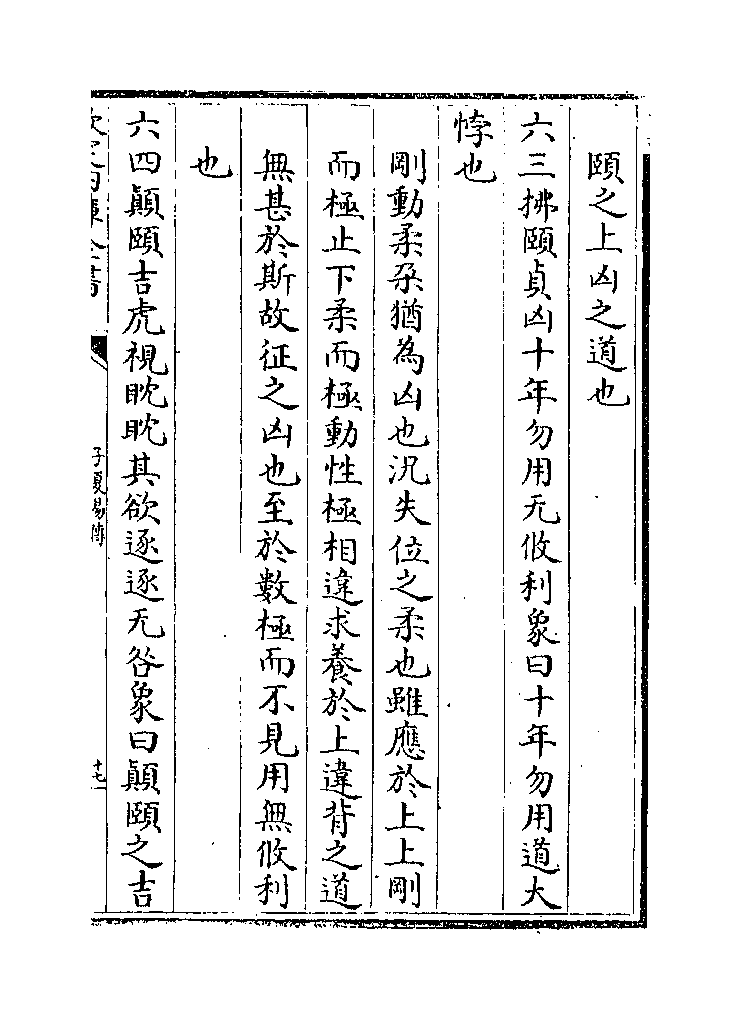 頤之上凶之道也
六三拂頤貞凶十年勿用无攸利象曰十年勿用道大
悖也
剛動柔朶猶為凶也況失位之柔也雖應於上上剛
而極止下柔而極動性極相違求養於上違背之道
無甚於斯故征之凶也至於數極而不見用無攸利
也
六四顛頤吉虎視眈眈其欲逐逐无咎象曰顛頤之吉
欽定四庫全書
子夏易傳
十七